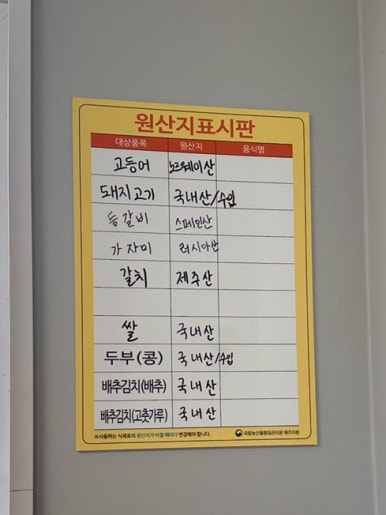 원산지표시판
대상품목 원산지 음식명
고등어 노르웨이산
돼지고기 국내산/수입
등갈비 스페인산
가자미 러시아산
갈치 제주산
쌀 국내산
두부(콩) 국내산/수입
배추김치(배추) 국내산
배추김치(고춧가루) 국내산
※사용하는 식재료의 원산지가 바뀔 때마다 변경해야 합니다. 국립농산물품질관리원 제주지원